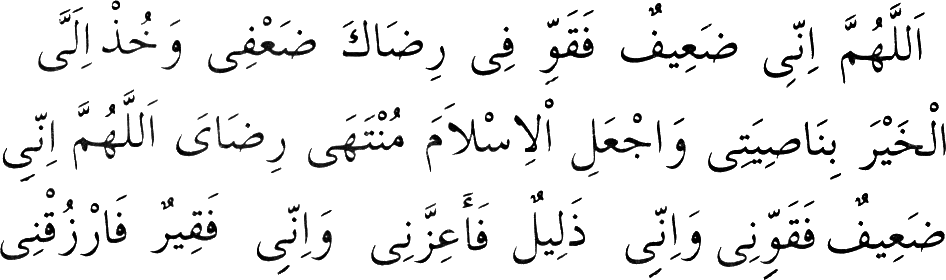 اَللَّهُمَّ اِنِّى ضَعِيفٌ فَقَوِّ فِى رِضَاكَ ضَعْفِى وَخُذْ اِلَىَّ
الْخَيْرَ بِنَاصِيَتِى وَاجْعَلِ اْلاِسْلاَمَ مُنْتَهَى رِضَاىَ اَللَّهُمَّ اِنِّىِ
ضَعِيفٌ فَقَوِّنِى وَاِنِّى ذَلِيلٌ فَأَعِزَّنِى وَاِنِّى فَقِيرٌ فَارْزُقْنِى